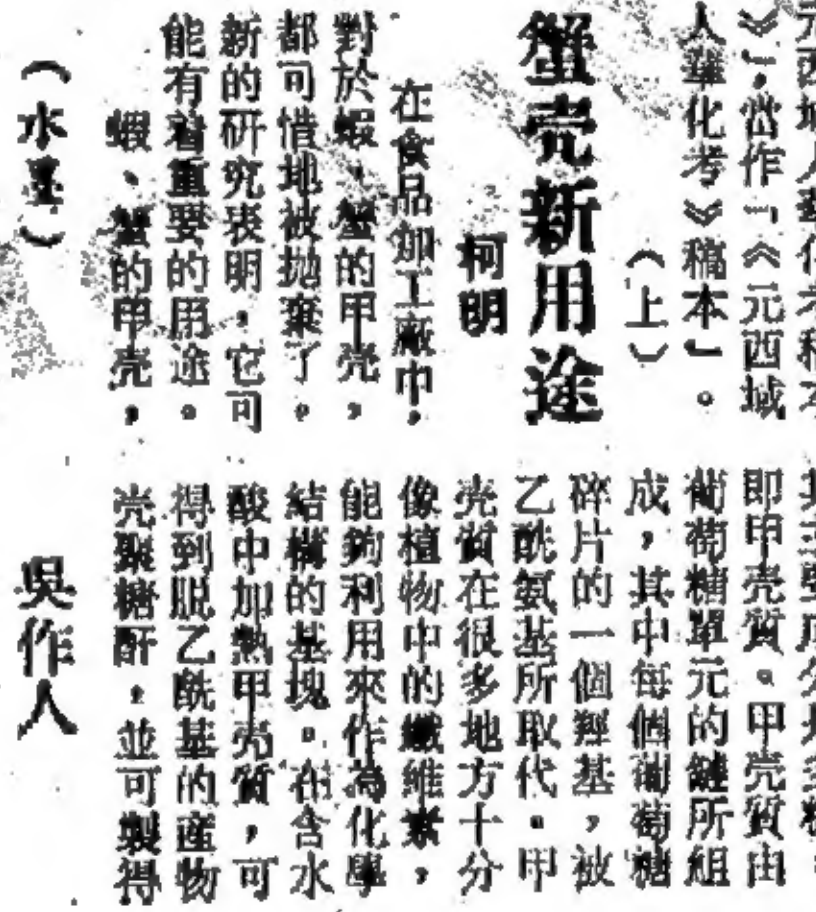 元西域人華化考稿本
》」，當作「《元西域
人華化考》稿本」。
（上）
蟹壳新用途
柯明
在食品加工廠中，
對於蝦、蟹的甲壳，
都可惜地被拋棄了。
新的研究表明，它可
能有着重要的用途。
蝦、蟹的甲壳，
其主要成分是多糖，
即甲壳質。甲壳質由
葡萄糖單元的鏈所組
成，其中每個葡萄糖
碎片的一個羥基，被
乙酰氨基所取代。甲
壳質在很多地方十分
像植物中的纖維素，
能夠利用來作為化學
結構的基塊。在含水
酸中加熱甲壳質，可
得到脱乙酰基的產物
壳聚糖酐，並可製得
（水墨）
吳作人